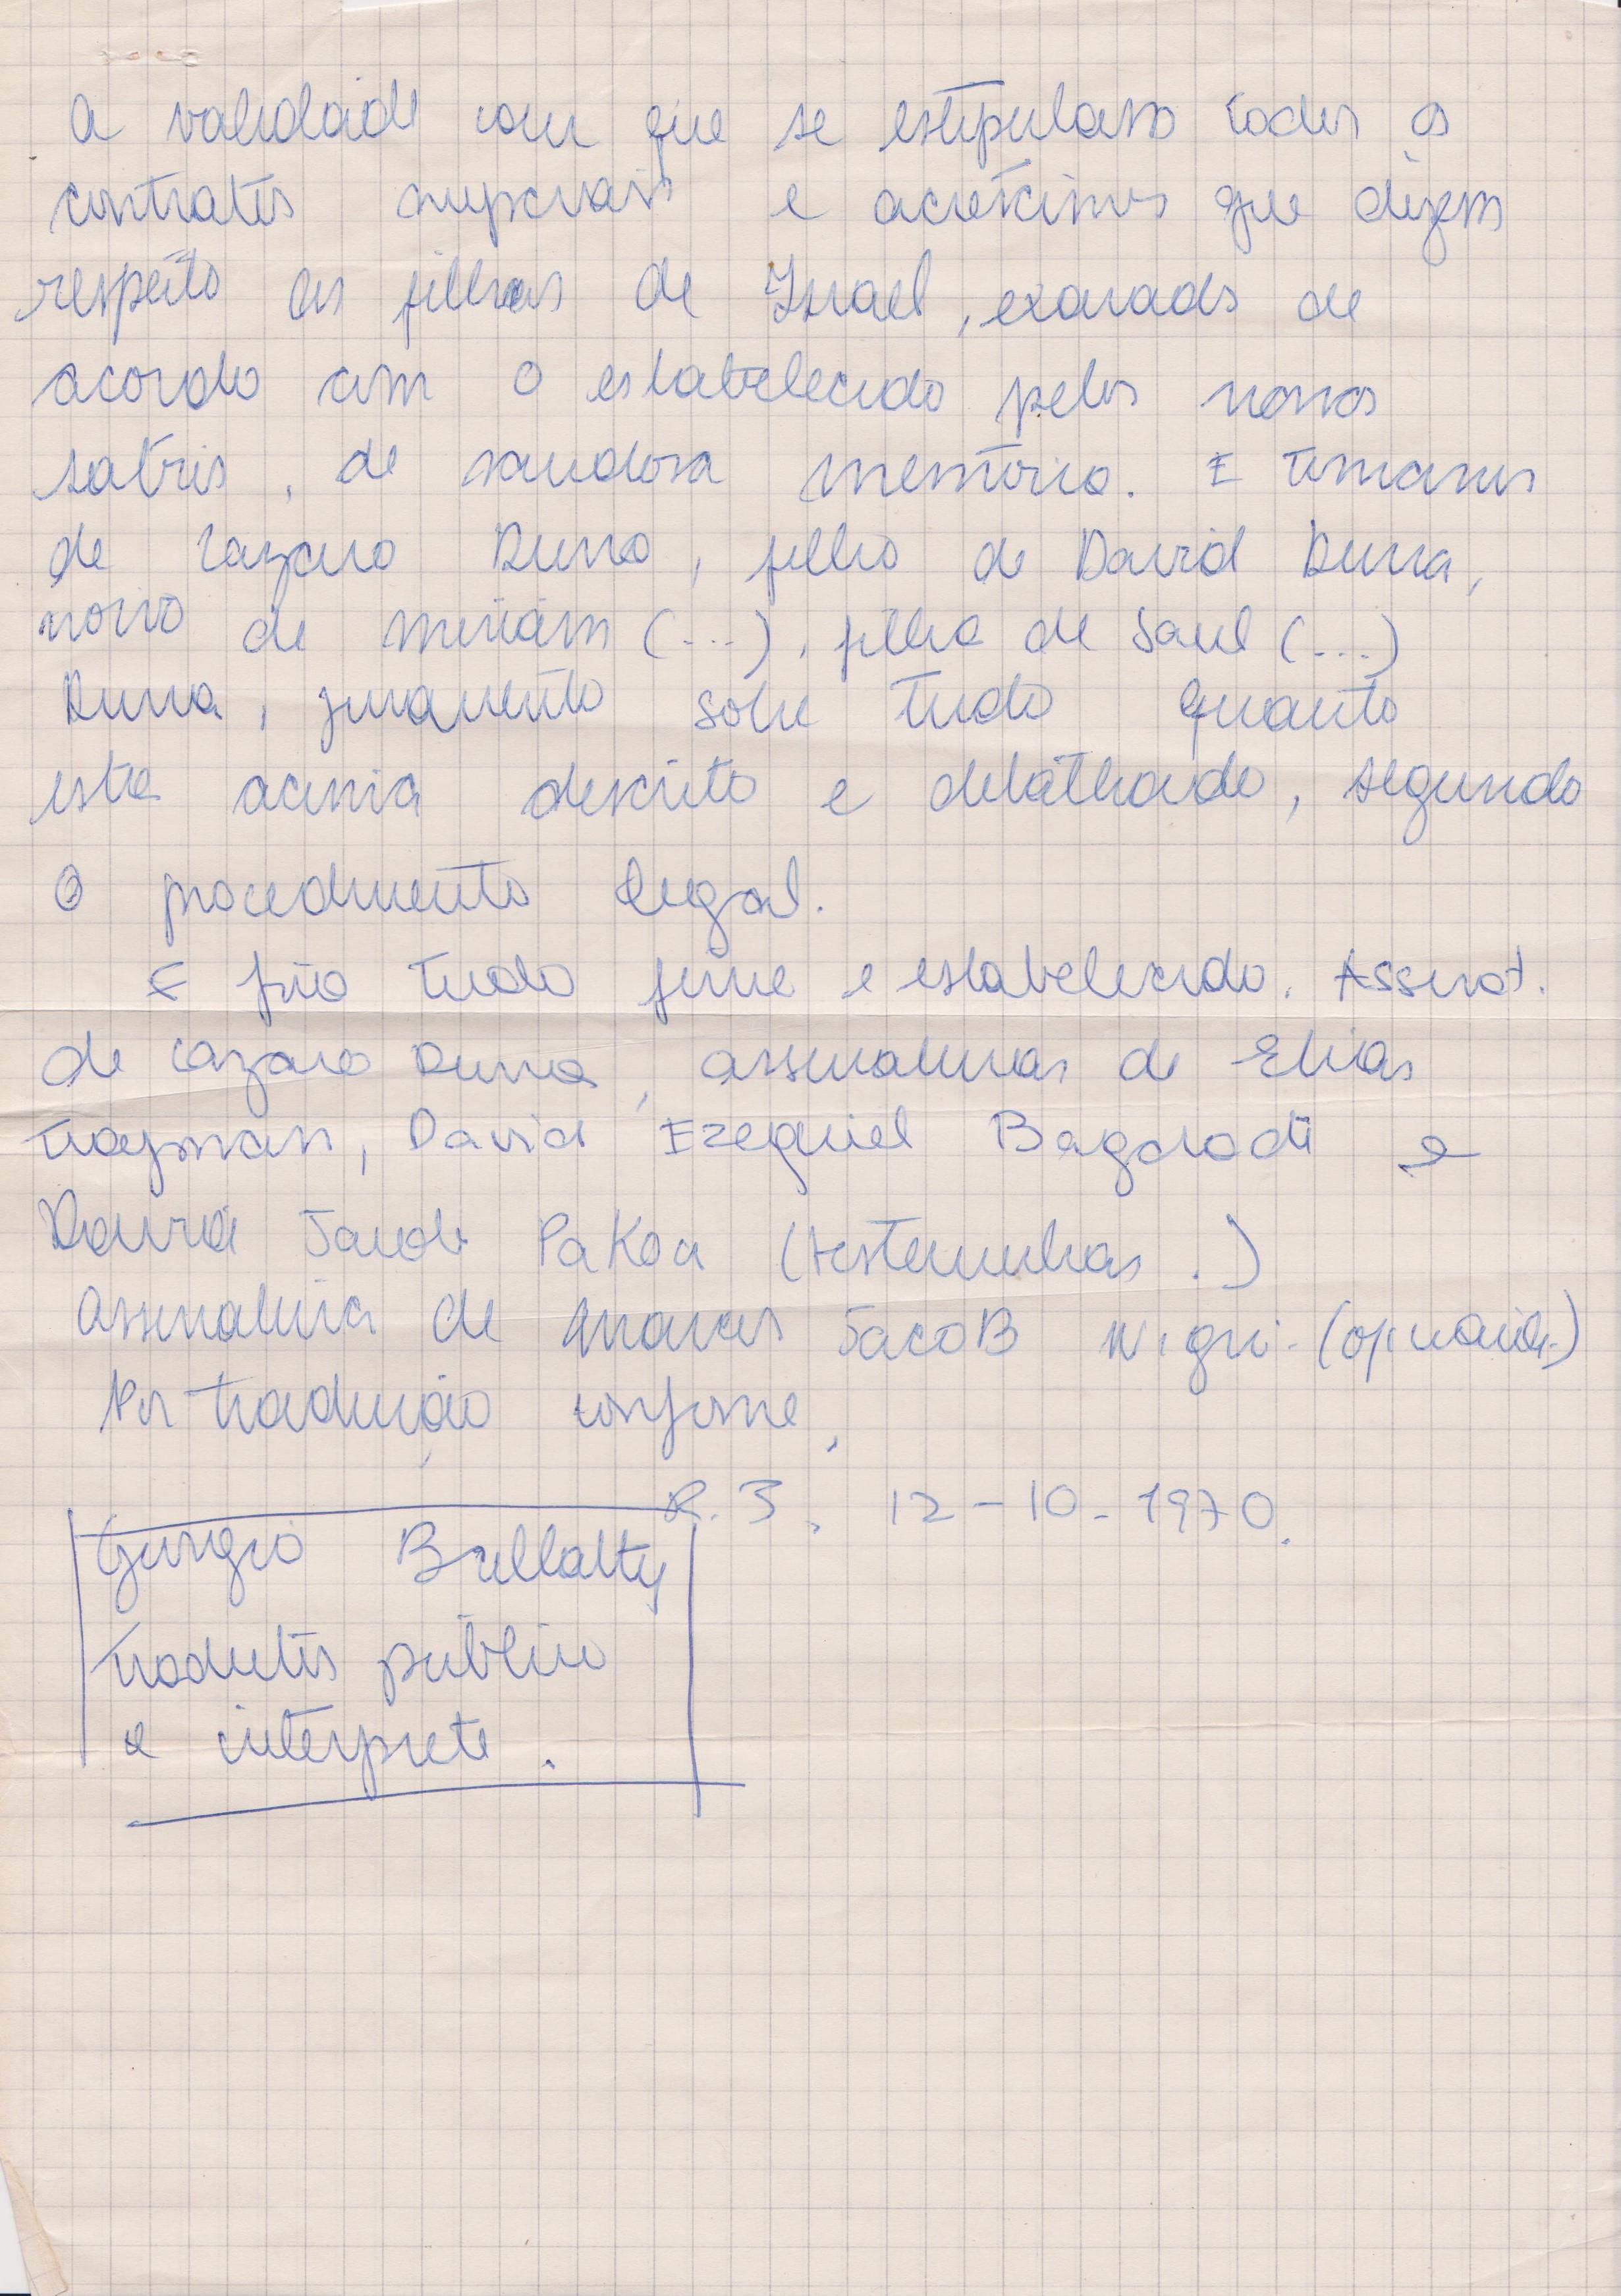 a validade com que se estipulam todos os
contratos nupciais e acréscimos que dizem
respeito às filhas de Israel, exarados de
acordo com o estabelecido pelos nossos
sabios, de saudosa memória. E tomamos
de Lazaro Durra, filho de David Durra,
noivo de Miriam (...), filha de Saul (...)
Durra, juramento sobre tudo quanto
esta acima descrito e detalhado, segundo
o procedimento legal.
E fica tudo firme e estabelecido. Assinat.
de Lazaro Durra, assinaturas de Elias
Trayman, David Ezequiel Bagdadi e
David Jacob (testemunhas.)
Assinatura de Marcos Jacob Nigri (
Por tradução conforme,
R. J., 12-10-1970.
Giorgio Bullaty
tradutor público
e intérprete.